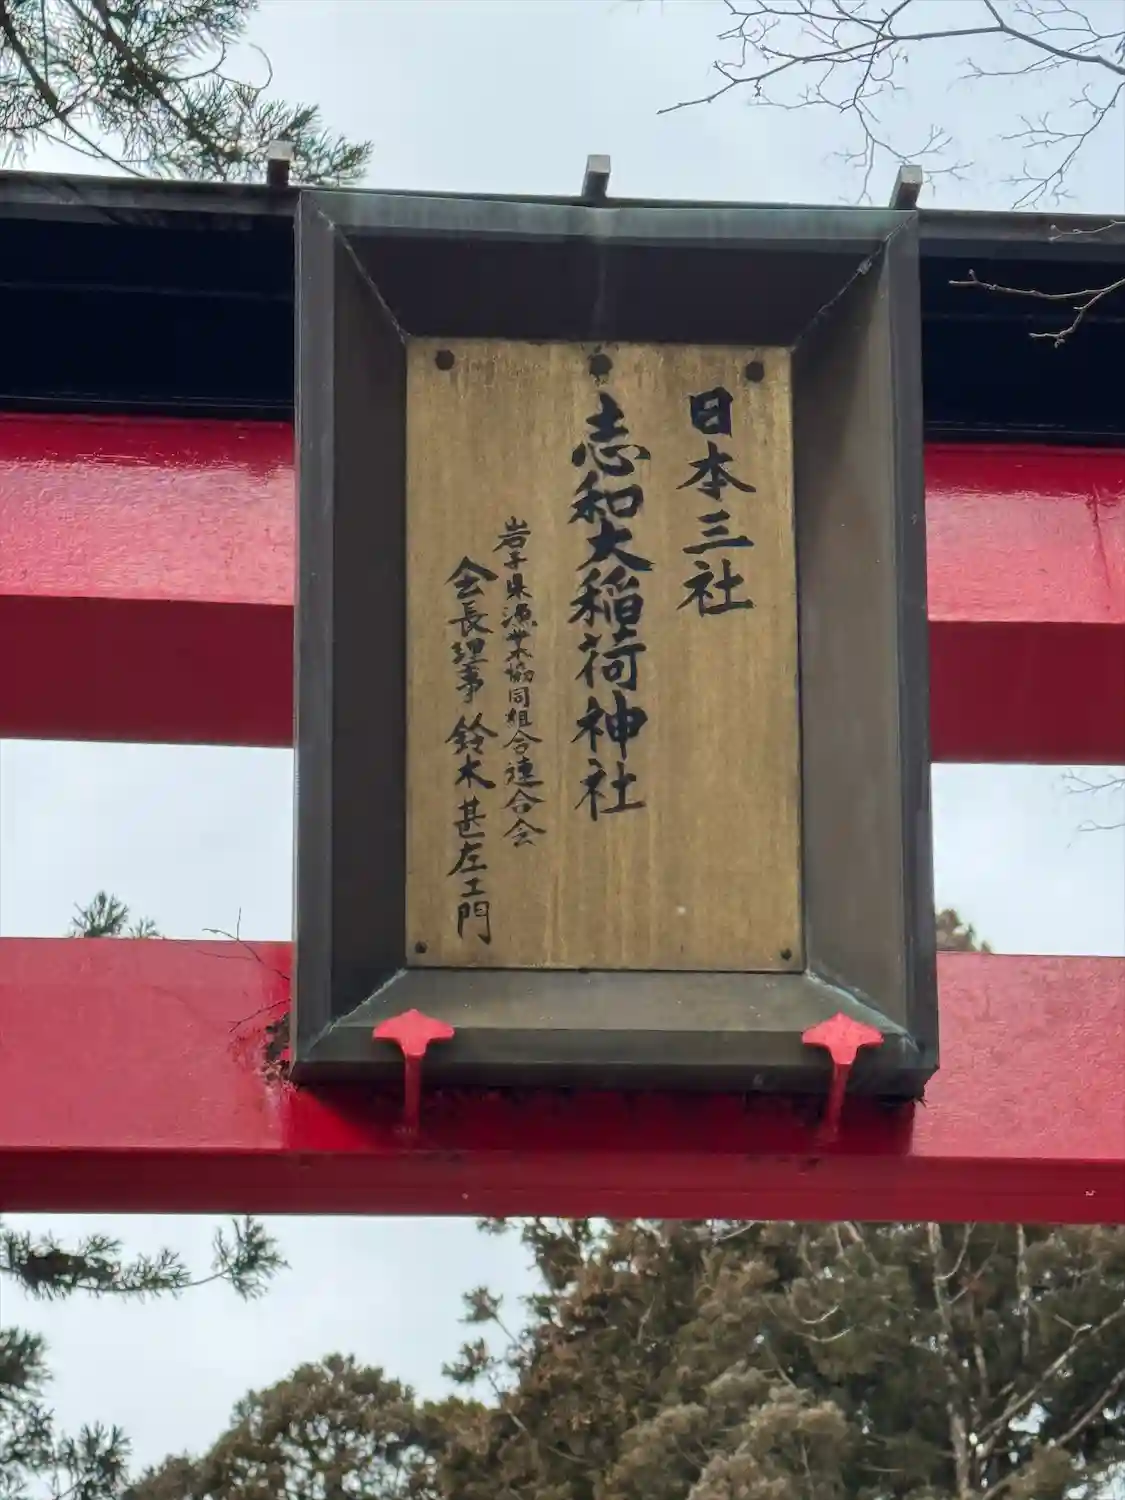 日本三社
志和大稲荷神社
岩手県漁業協同組合連合会
会長理事 鈴木甚左エ門